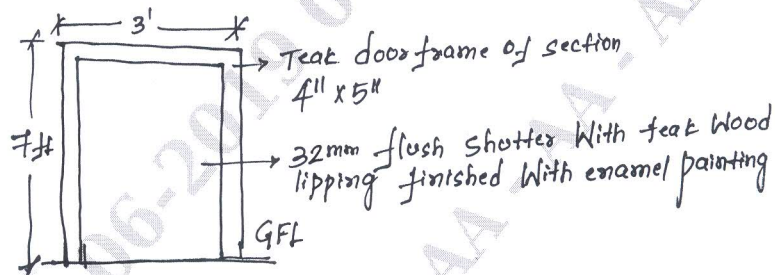 3'
Teak door frame of section
4" x 5"
7ft
32mm flush Shutter With teak Wood
lipping finished With enamel painting
GFL
06-2019
AA - AA - AA